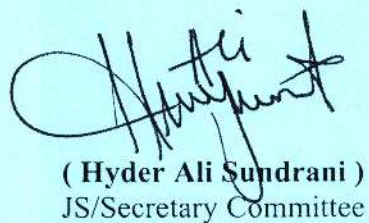 ( Hyder Ali Sundrani )
JS/Secretary Committee